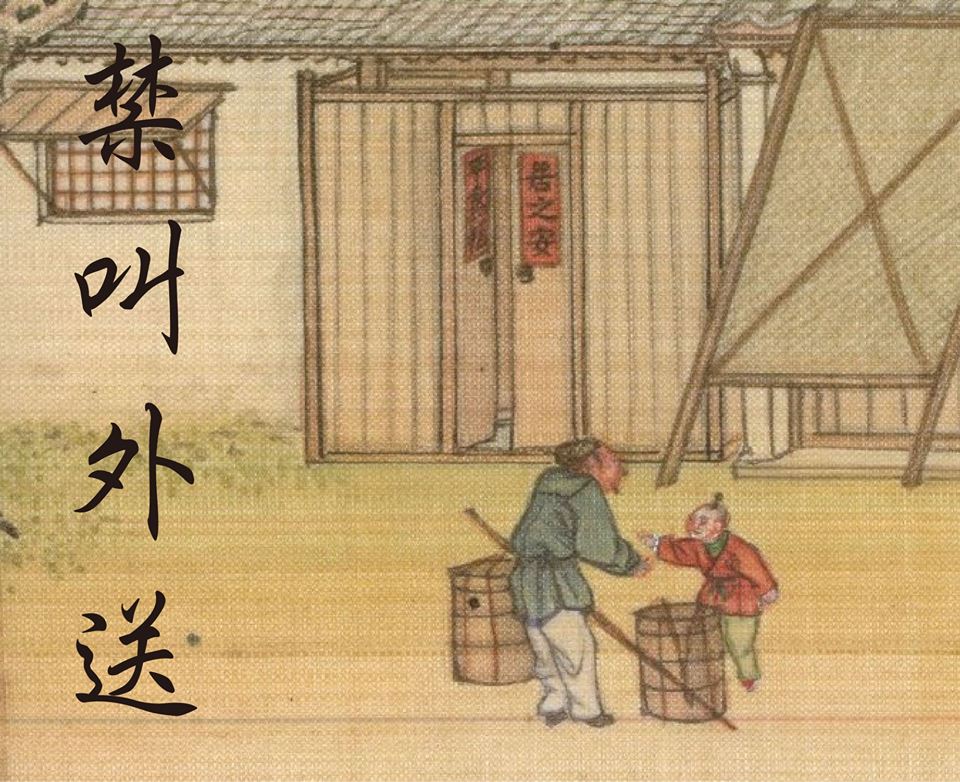 禁叫外送
居之安